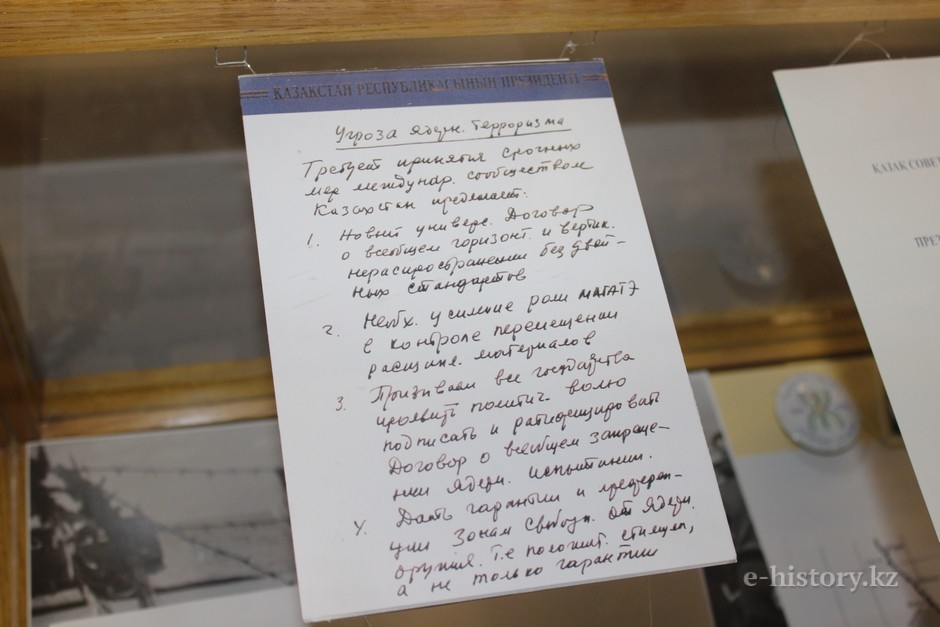 ҚАЗАҚСТАН РЕСПУБЛИКАСЫНЫҢ ПРЕЗИДЕНТІ
Угроза ядерн. терроризма
Требует принятия срочных
мер междунар. сообществом
Казахстан предлагает:
1. Новый универс. Договор
о всеобщем горизонт. и вертик.
нераспространении без двой-
ных стандартов
2. Необх. усиление роли МАГАТЭ
в контроле перемещении
расщипл. материалов
3. Призываем все государства
проявить политич. волю
подписать и ратифицировать
Договор о всеобщем запреще-
нии ядерн. испытании.
4. Дать гарантии и преферен-
ции зонам свободн. от ядерн.
оружия. Т.е положит. стимул,
а не только гарантии
ҚАЗАҚ СОВЕ
ПРЕ
e-history.kz